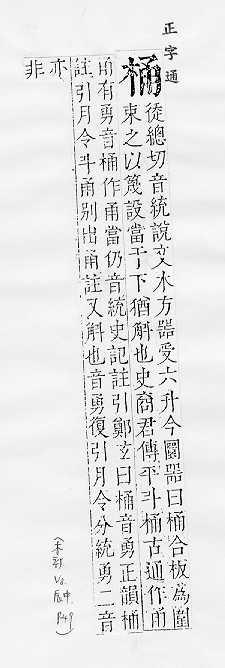 正字通
桶
從總切音統說文木方器受六升今圜器曰桶合板為圍
束之以篾設當于下猶斛也史商君傳平斗桶古通作甬
甬有勇音桶作甬當仍音統史記註引鄭玄曰桶音勇正韻桶
註引月令斗甬別出甬註又斛也音勇復引月令分統勇二音
亦
非
(木部
辰中
P49)